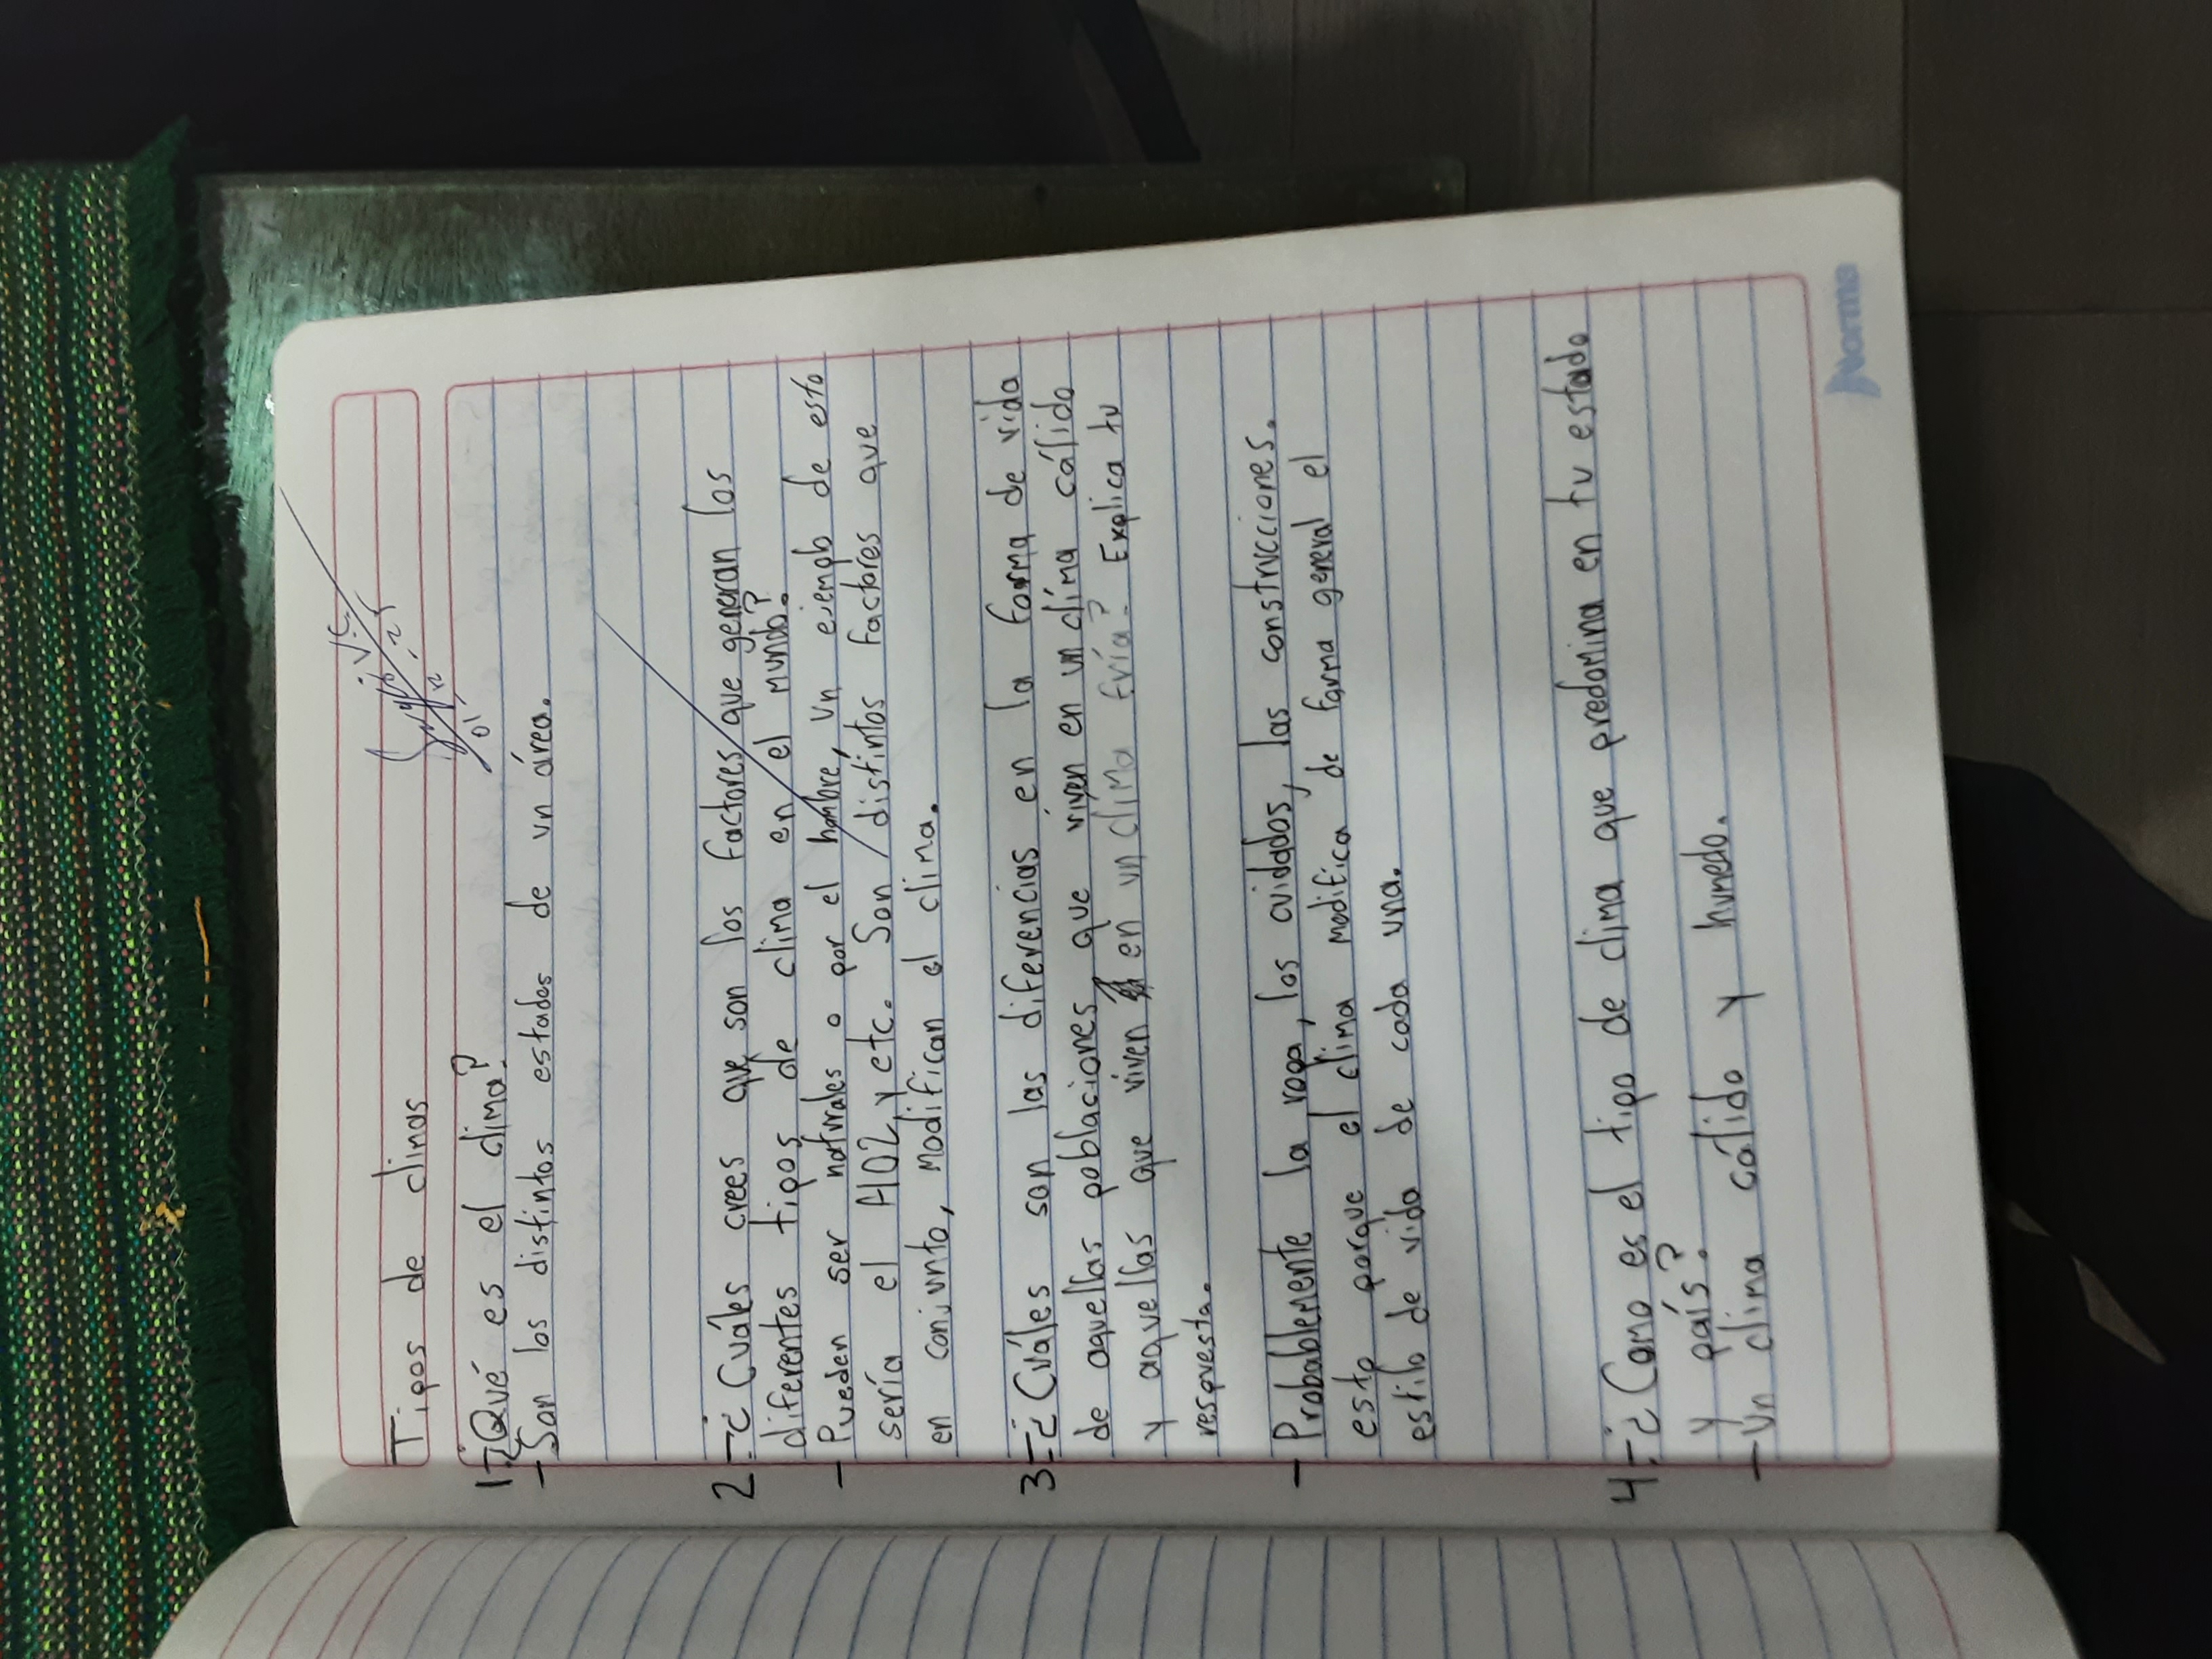 Tipos de climas
1.-¿Qué es el clima?
- Son los distintos estados de un área.
2.-¿Cuáles crees que son los factores que generan los
diferentes tipos de clima en el mundo?
- Pueden ser naturales o por el hombre, un ejemplo de esto
sería el AO2, y etc. Son distintos factores que
en conjunto, modifican el clima.
3-¿Cuáles son las diferencias en la forma de vida
de aquellas poblaciones que viven en un clima cálido
y aquellas que viven en un clima fría? Explica tu
respuesta.
- Probablemente la ropa, los cuidados, las construcciones.
esto porque el clima modifica de forma general el
estilo de vida de cada una.
4.-¿Como es el tipo de clima que predomina en tu estado
y país?
- Un clima cálido y humedo.
Norma